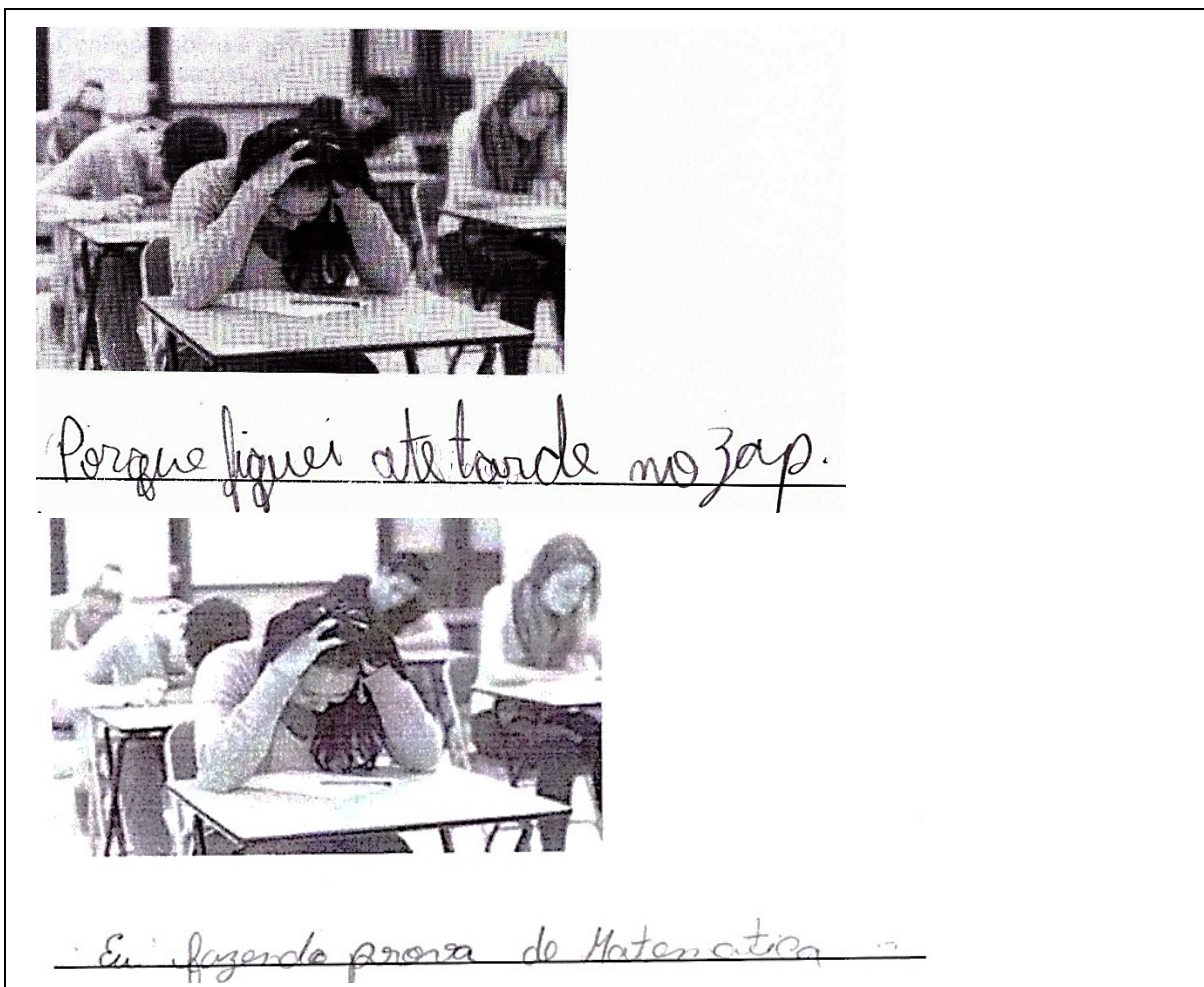 Porque fiquei ate tarde no zap.
Eu fazendo prova de Matematica